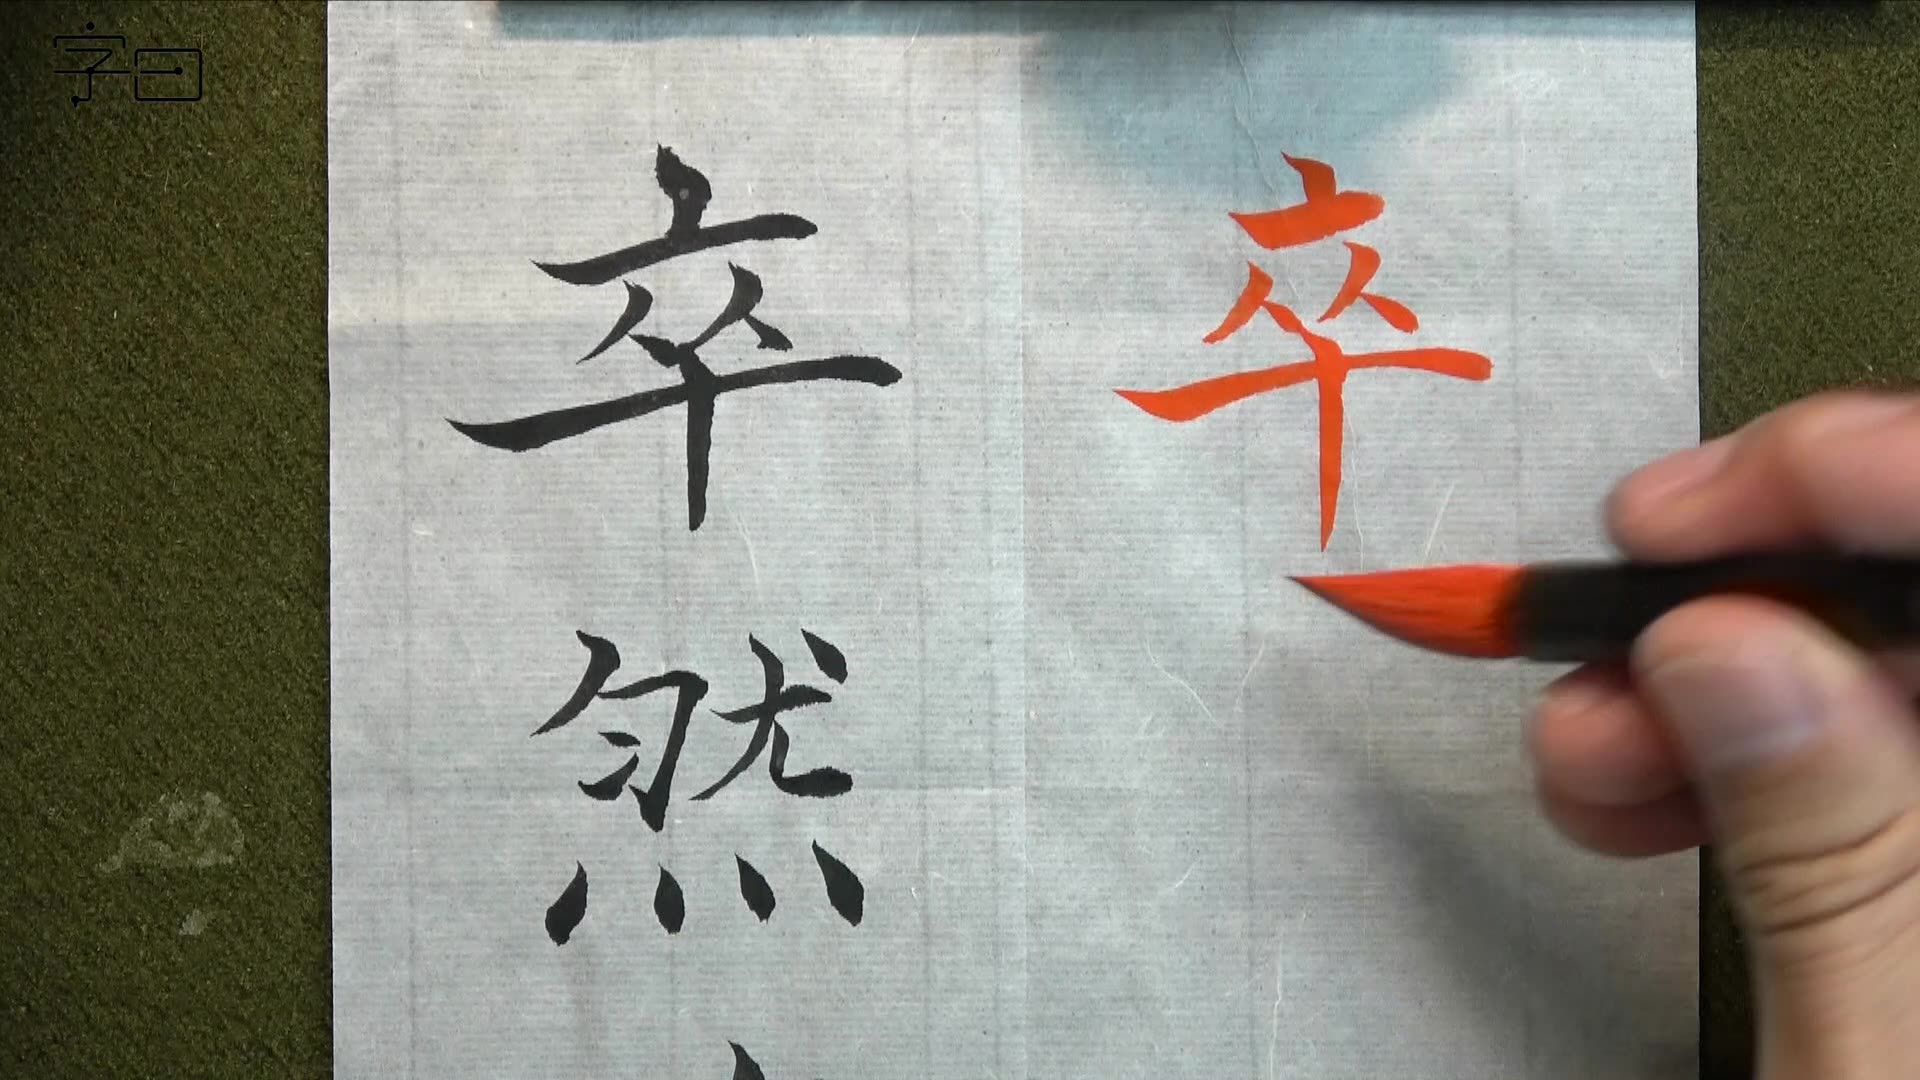 字曰
卒 卒
然